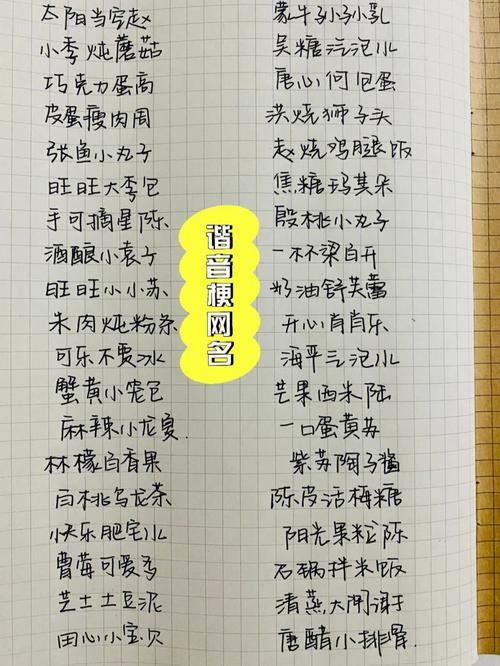 太阳当空赵
小季炖蘑菇
巧克力蛋高
皮蛋瘦肉周
张鱼小丸子
旺旺大季包
手可摘星陈
酒酿小袁子
旺旺小小苏
朱肉炖粉条
可乐不贾冰
蟹黄小笼包
麻辣小龙夏
林檬白香果
白桃乌龙茶
快乐肥宅水
曹莓可爱多
芝士土豆泥
田心小宝贝
谐音梗网名
蒙牛小小乳
吴糖汽泡水
唐心何包蛋
洪烧狮子头
赵烧鸡腿饭
焦糖玛其朵
殷桃小丸子
一杯梁白开
奶油舒芙蕾
开心肖肖乐
海平气泡水
芒果西米陆
一口蛋黄苏
紫苏陶子酱
陈皮话梅糖
阳光果粒陈
石锅拌米饭
清蒸大闸谢
唐醋小排骨